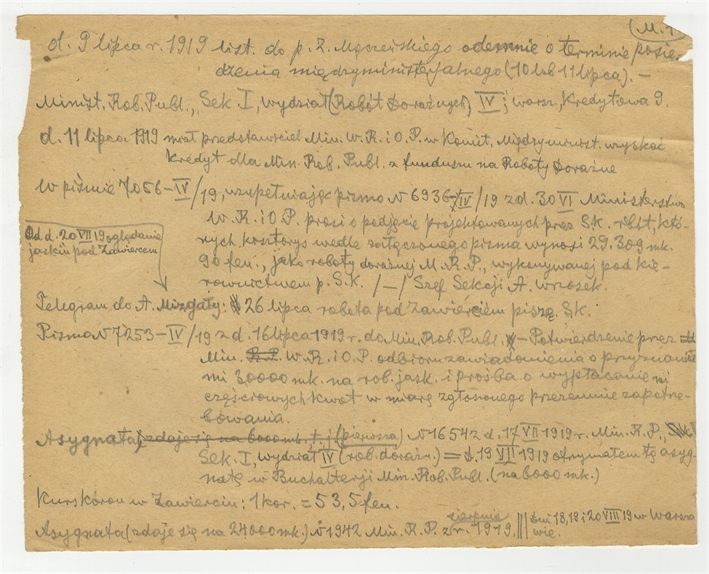 (M. 7
d. 9 lipca r. 1919 list. do p. Z. Mączeńskiego odemnie o terminie posie
dzenia międzyministerjalnego (10 lub 11 lipca). –
Minist. Rob. Publ., Sek. I, wydział (Robót Doraźnych) IV; warsz., Kredytowa 9.
d. 11 lipca 1919 miał przedstawiciel Min. W. R. i O. P. w Komit. Międzyminist. wyskać
Kredyt dla Min. Rob. Publ. z funduszu na Roboty Doraźne
W piźmie 7056–IV/19, uzupełniając pismo N 6936/IV/19 z d. 30 VI Ministerstwo
W. R. i O. P. prosi o podjęcie projektowanych przez S.K. robót, któ-
rych kosztorys wedle załączonego pisma wynosi 29.309 mk.
90 fen., jako roboty doraźnej M. R. P., wykonywanej pod kie-
rownictwem p. S.K. /–/ Szef Sekcji A. Wrosek.
Od d. 20 VII 19 oglądanie
jaskiń pod Zawierciem
Telegram do A. Mizgały: 26 lipca robota pod Zawierciem piszę. SK.
Pizmo N 7253–IV/19 z d. 16 lipca 1919 r. do Min. Rob. Publ. – Potwierdzenie przez
Min. R. P. W. R. i O. P. odbioru zawiadomienia o przyznaniu
mi 30000 mk. na rob. jask. i prośba o wypłacanie mi
częściowych kwot w miarę zgłoszonego przezemnie zapotrze-
bowania.
Asygnata (zdaje się na 6000 mk., t. j. (pierwsza) N 16542 d. 17 VII 1919 r. Min. R. P.,
Sek. I, wydział IV (rob. doraźn.) = d. 19 VII 1919 otrzymałem tę asyg
natę w Buchalterji Min. Rob. Publ. (na 6000 mk.)
Kurs koron w Zawierciu: 1 kor. = 53,5 fen.
Asygnata (zdaje się na 24000 mk.) N 1942 Min. R. P. z sierpnia r. 1919. ||| dni 18, 19 i 20 VIII 19 w Warsza
wie.